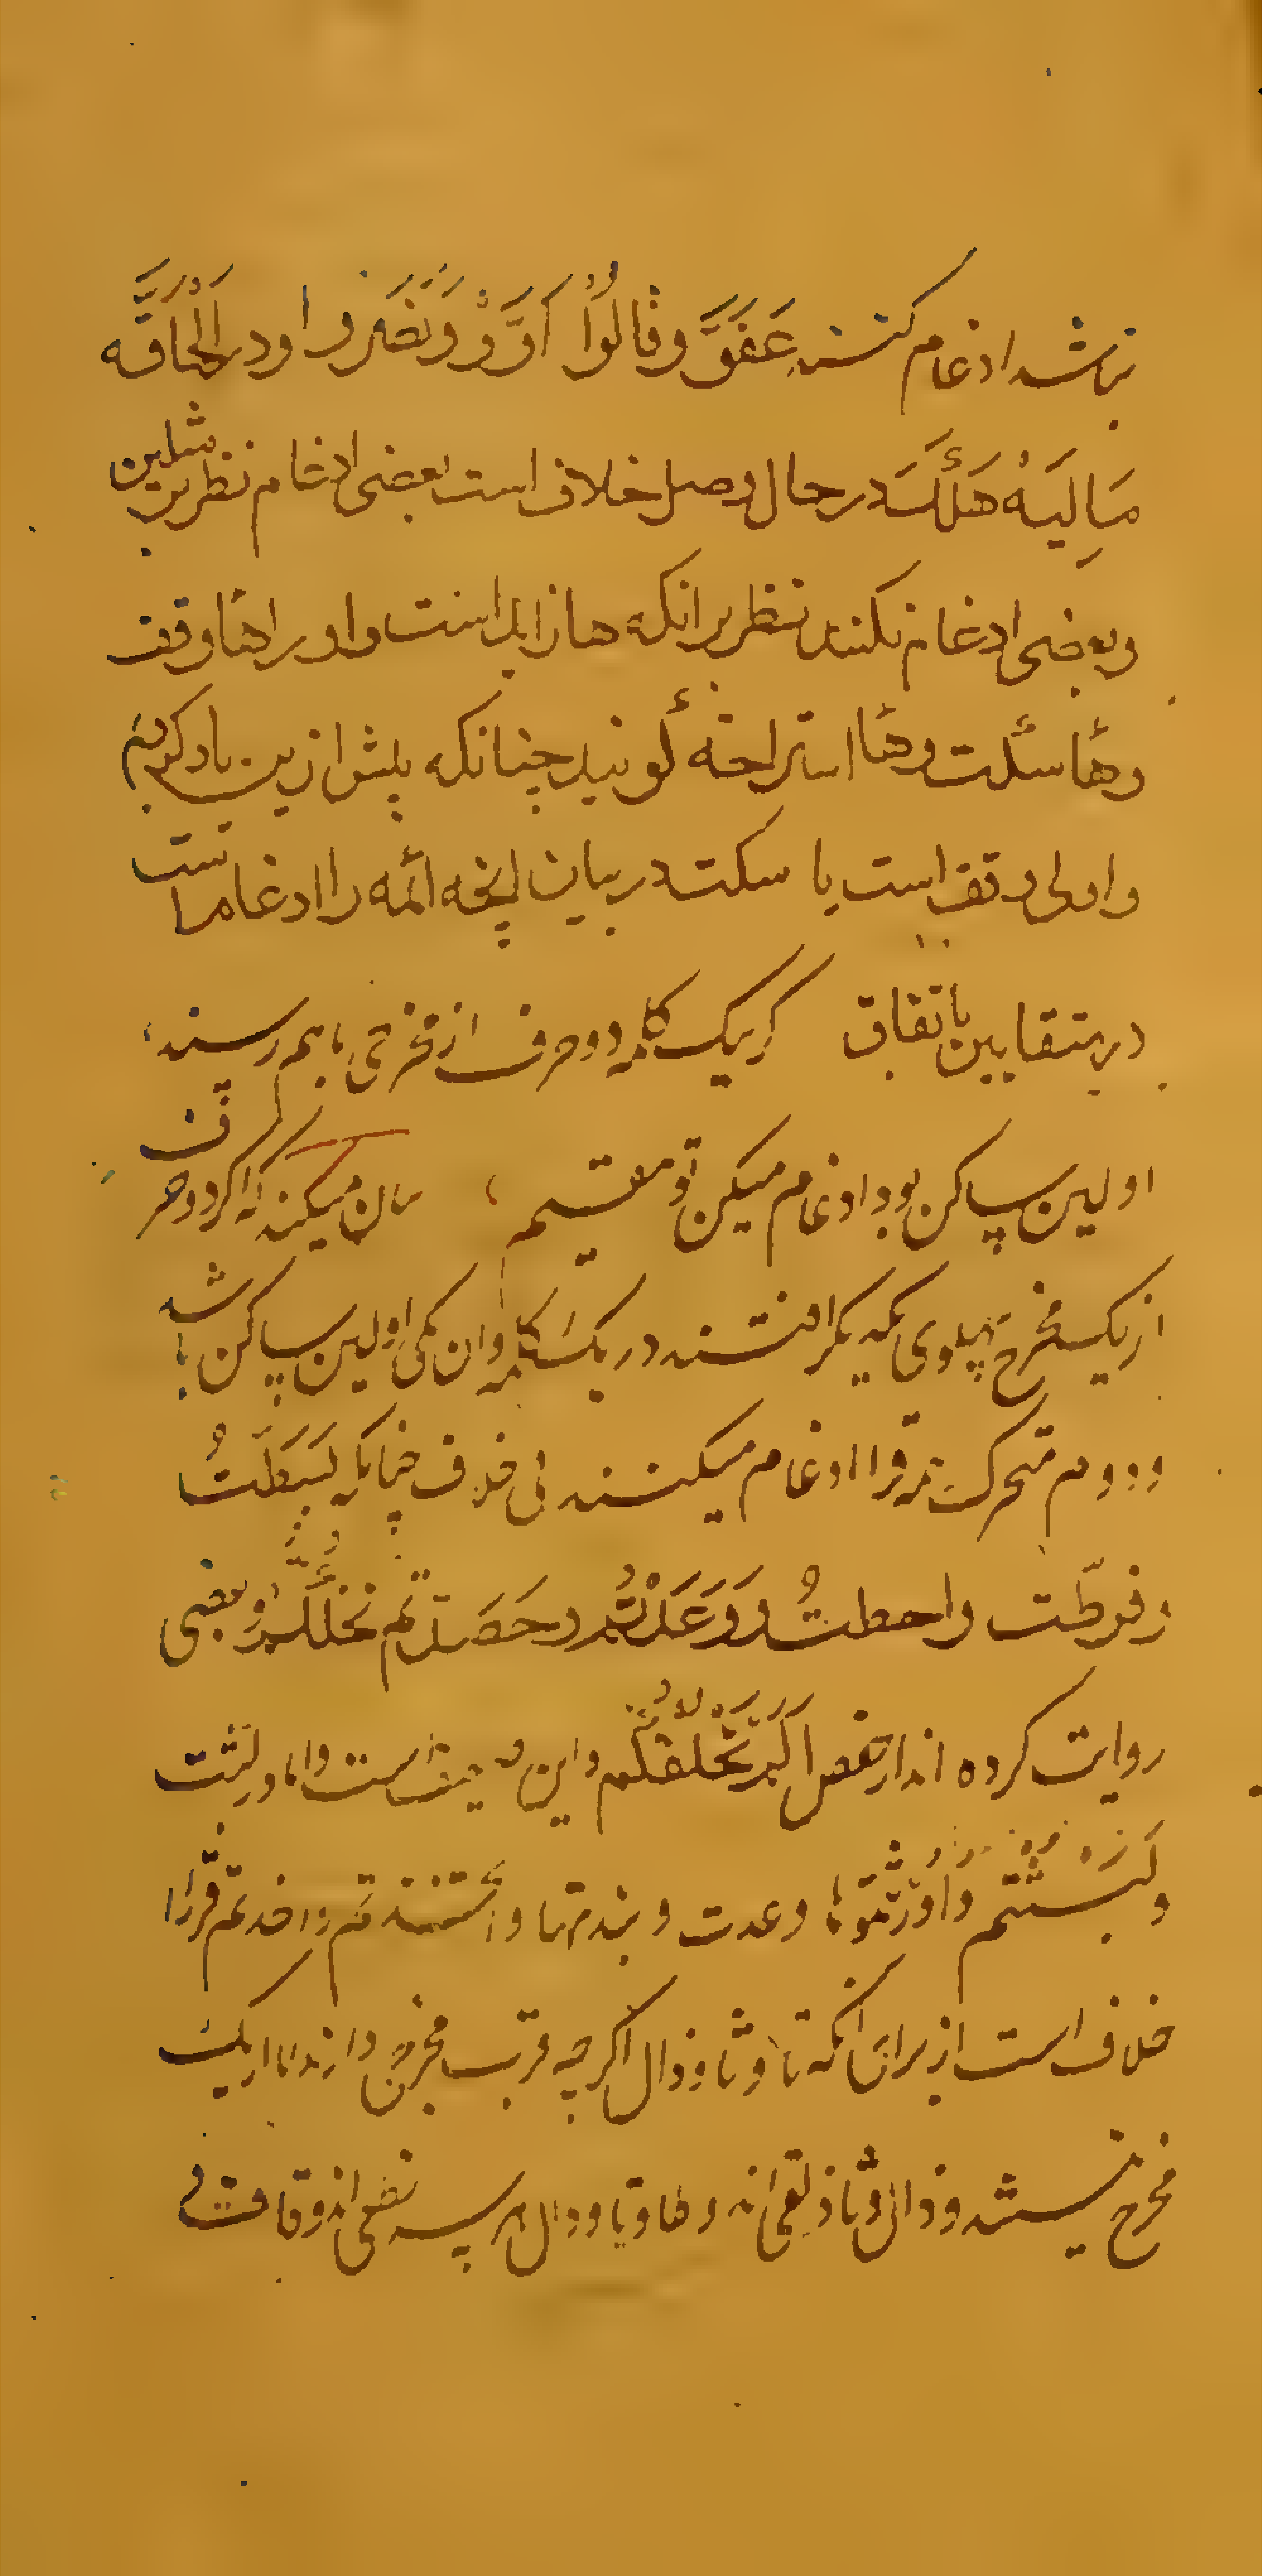 نباشد ادغام کنند عَفَوَّ وقالُوْا اَوَّوْ وَنَصَرُوا ودر اَلْحَاقَّه
مَالِیَهْ هَلَكَ در حال وصل خلاف است بعضی ادغام نظر بر مثلین
وبعضی ادغام نکنند نظر بر انکه ها زاید است واو را هاء وقف
وهاء سکت وهاء استراحة کویند چنانکه پیش ازین یاد کردیم
واولی وقف است یا سکت در بیان انچه ائمه را ادغامست
در متقاربین باتفاق کر بیک کلمه دو حرف از مخرجی باهم رسند
اولین ساکن بود ادغام میکن تو مقیم بیان میکند که اکر دو حرف
از یک مخرج پهلوی یکدیگر افتند در یک کلمه وان یکی اولین ساکن باشد
ودوم متحرک همه قرا ادغام میکنند بی خلاف چنانکه بَسَطْتُ
وفرطّت واحطتُ وَوَعَدْتُمْ وحَصَدْتم نخلقکم وبعضی
روایت کرده اند از حفص اَلَمْ نَخْلُقْكُم واین ضعیف است واما ولبثت
ولَبِثْتُم واُورِثْتُموها وعدت ونبذتها واتخذتم واخذتم قرّا را
خلاف است از برای انکه تا وثا وذال اکرچه قرب مخرج دارند اما از یک
مخرج نیستند وذال وثا ذلقی اند وطا وتا ودال هر سه نطعی اند وقافت